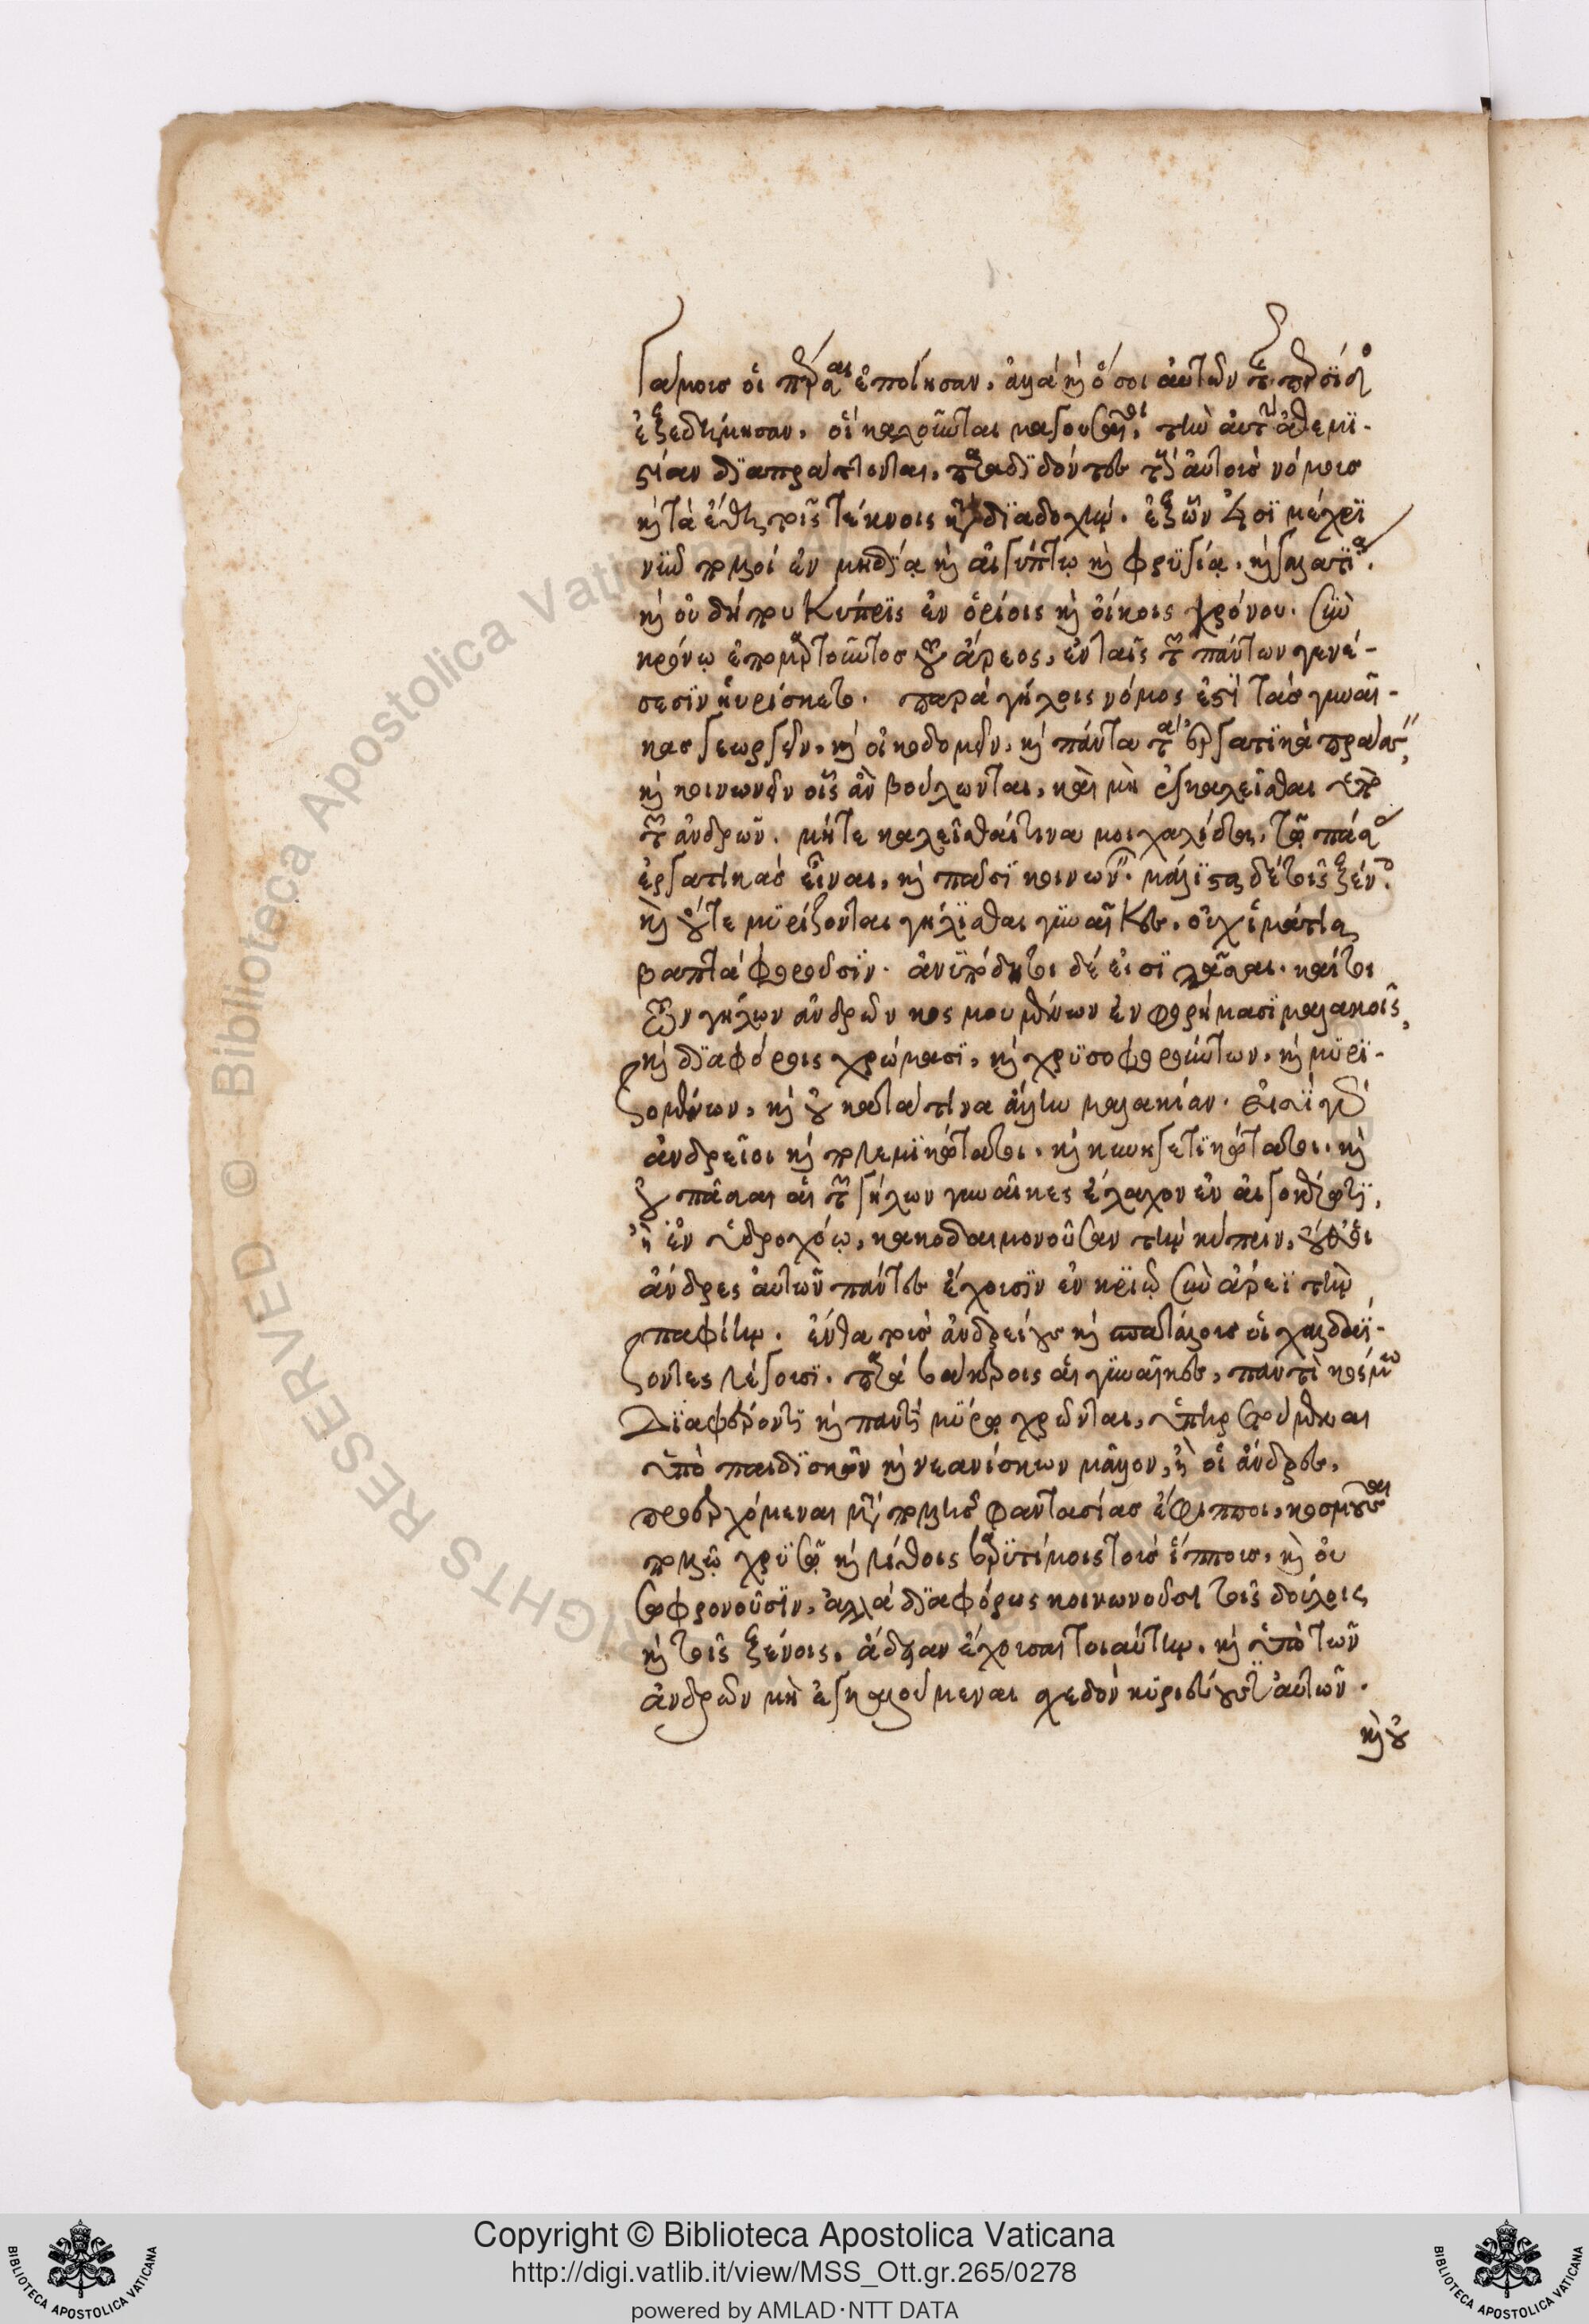 Γάμοις οἱ πέρσαι ἐποίησαν, ἀλλὰ καὶ ὅσοι αὐτῶν τῆς περσίδος
ἐξεδήμησαν, οἳ καλοῦνται μαγουσαῖοι, τὴν αὐτὴν ἀθεμι-
στίαν διαπράττονται, παραδιδόντες τοὺς αὐτοὺς νόμους
καὶ τὰ ἔθη τοῖς τέκνοις κατὰ διαδοχήν. ἐξ ὧν εἰσι μέχρι
νῦν πολλοὶ ἐν μηδίᾳ καὶ αἰγύπτῳ καὶ φρυγίᾳ, καὶ γαλατίᾳ.
καὶ οὐ δήπου Κύπρις ἐν ὁρίοις καὶ οἴκοις χρόνου. σὺν
κρόνῳ ἐπιμαρτυροῦντος ἄρεος, ἐν ταῖς τῶν πάντων γενέ-
σεσιν εὑρίσκεται. παρὰ γήλοις νόμος ἐστὶ τὰς γυναῖ-
κας γεωργεῖν, καὶ οἰκοδομεῖν, καὶ πάντα τὰ ἐργατικὰ πράττειν,
καὶ κοινωνεῖν οἷς ἂν βούλωνται, καὶ μὴ ἐγκαλεῖσθαι ὑπὸ
τῶν ἀνδρῶν. μήτε καλεῖσθαί τινα μοιχαλίδα, τῷ πάσας
ἐργατικὰς εἶναι, καὶ πᾶσι κοινωνεῖν. μάλιστα δὲ τοῖς ξένοις.
καὶ οὔτε μυρίζονται γήλισσαι γυναῖκες, οὐχ ἱμάτια
βαπτὰ φοροῦσιν. ἀνυπόδητοι δέ εἰσι πᾶσαι. καίτοι
τῶν γήλων ἀνδρῶν κοσμουμένων ἐν φορήμασι μαλακοῖς,
καὶ διαφόροις χρώμασι, καὶ χρυσοφορούντων, καὶ μυρι-
ζομένων, καὶ οὐ κατά τινα ἄλλην μαλακίαν. εἰσὶ γὰρ
ἀνδρεῖοι καὶ πολεμικώτατοι, καὶ κυνηγετικώτατοι, καὶ
οὐ πᾶσαι αἱ τῶν γήλων γυναῖκες ἔλαχον ἐν αἰγοκέρωτι,
ἢ ἐν ὑδροχόῳ, κακοδαιμονοῦσαν τὴν κύπριν, οὐδ' οἱ
ἄνδρες αὐτῶν πάντες ἔχουσιν ἐν κριῷ σὺν ἄρει τὴν
παφίην. ἔνθα τοὺς ἀνδρείους καὶ σπατάλους οἱ χαλδαΐ-
ζοντες λέγουσι. παρὰ βάκτροις αἱ γυναῖκες, παντὶ κόσμῳ
Διαφέροντι καὶ παντὶ μύρῳ χρῶνται, ὑπηρετούμεναι
ὑπὸ παιδισκῶν καὶ νεανίσκων μᾶλλον, ἢ οἱ ἄνδρες,
προερχόμεναι μετὰ πολλῆς φαντασίας ἔφιπποι, κοσμοῦσαι
πολλῷ χρυσῷ καὶ λίθοις βαρυτίμοις τοὺς ἵππους, καὶ οὐ
σωφρονοῦσιν, ἀλλὰ διαφόρως κοινωνοῦσι τοῖς δούλοις
καὶ τοῖς ξένοις, ἄδειαν ἔχουσαι τοιαύτην, καὶ ὑπὸ τῶν
ἀνδρῶν μὴ ἐγκαλούμεναι σχεδὸν κυριεύουσαι αὐτῶν.
καὶ οὐ
Copyright © Biblioteca Apostolica Vaticana
http://digi.vatlib.it/view/MSS_Ott.gr.265/0278
powered by AMLAD·NTT DATA
BIBLIOTECA APOSTOLICA VATICANA
BIBLIOTECA APOSTOLICA VATICANA